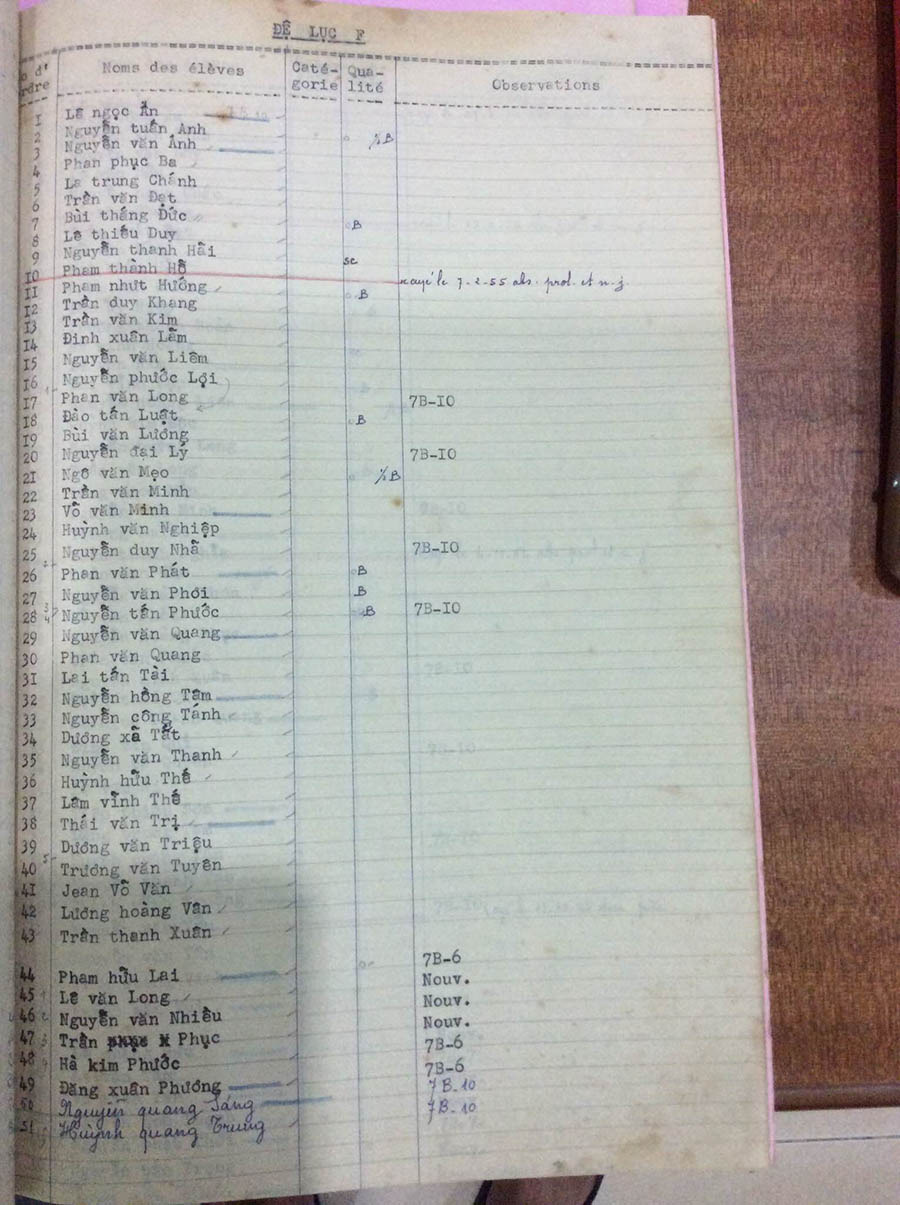 ĐỆ LỤC F
o d' ordre Noms des élèves Caté-gorie Qua-lité Observations
1 Lê ngọc Ẩn
2 Nguyễn tuấn Anh
3 Nguyễn văn Ánh ½B
4 Phan phục Ba
5 La trung Chánh
6 Trần văn Đạt
7 Bùi thắng Đức
8 Lê thiếu Duy B
9 Nguyễn thanh Hải
10 Phạm thành Hổ sc
11 Phạm nhựt Hướng rayé le 7-2-55 abs. prol. et n.j.
12 Trần duy Khang B
13 Trần văn Kim
14 Đinh xuân Lãm
15 Nguyễn văn Liêm
16 Nguyễn phước Lợi
17 Phan văn Long 7B-10
18 Đào tấn Luật B
19 Bùi văn Lương
20 Nguyễn đại Lý 7B-10
21 Ngô văn Mẹo ½B
22 Trần văn Minh
23 Võ văn Minh
24 Huỳnh văn Nghiệp
25 Nguyễn duy Nhã 7B-10
26 Phan văn Phát B
27 Nguyễn văn Phơi B
28 Nguyễn tấn Phước B 7B-10
29 Nguyễn văn Quang
30 Phan văn Quang
31 Lai tấn Tài
32 Nguyễn hồng Tâm
33 Nguyễn công Tánh
34 Dương xã Tắt
35 Nguyễn văn Thanh
36 Huỳnh hữu Thế
37 Lâm vĩnh Thế
38 Thái văn Trị
39 Dương văn Triệu
40 Trương văn Tuyên
41 Jean Võ Văn
42 Lương hoàng Vân
43 Trần thanh Xuân
44 Phạm hữu Lai 7B-6
45 Lê văn Long Nouv.
46 Nguyễn văn Nhiều Nouv.
47 Trần Phục Nouv.
48 Hà kim Phước 7B-6
49 Đăng xuân Phương 7B-6
50 Nguyễn quang Sáng 7B-10
51 Huỳnh quang Trung 7B-10